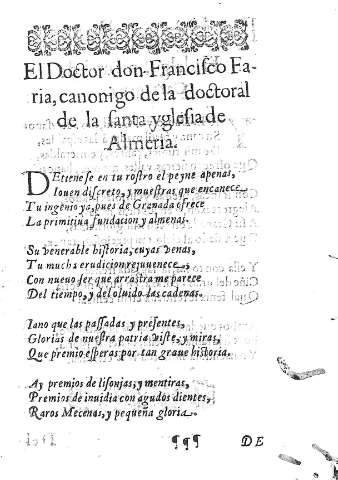 El Doctor don Francisco Fa-
ria, canonigo de la doctoral
de la santa yglesia de
Almeria.
DEtienese en tu rostro el peyne apenas,
Iouen discreto, y muestras que encanece
Tu ingenio ya, pues de Granada ofrece
La primitiua fundacion y almenas.
Su venerable historia, cuyas venas,
Tu mucha erudicion rejuuenece,
Con nueuo ser que arrastra me parece
Del tiempo, y del oluido las cadenas.
Iano que las passadas y presentes,
Glorias de nuestra patria viste, y miras,
Que premio esperas por tan graue historia.
Ay premios de lisonjas, y mentiras,
Premios de inuidia con agudos dientes,
Raros Mecenas, y pequeña gloria.
¶¶¶ DE